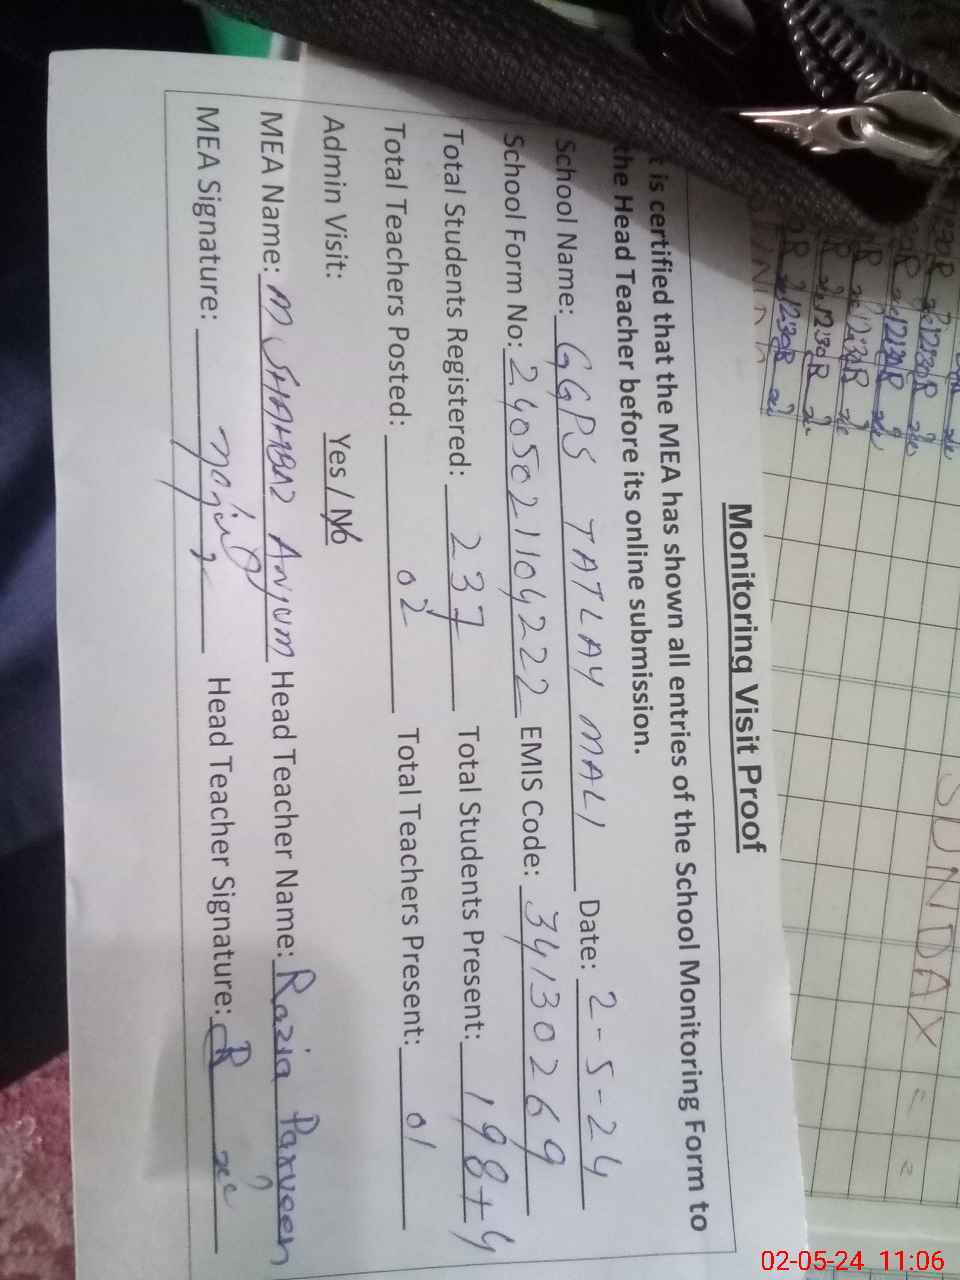 Monitoring Visit Proof
t is certified that the MEA has shown all entries of the School Monitoring Form to
the Head Teacher before its online submission.
School Name: GGPS TATLAY MALI Date: 2-5-24
School Form No: 2405021104222 EMIS Code: 34130269
Total Students Registered: 237 Total Students Present: 198+4
Total Teachers Posted: 02 Total Teachers Present: 01
Admin Visit: Yes / No
MEA Name: M SHAHBAZ ANJUM Head Teacher Name: Razia Parveen
MEA Signature: Head Teacher Signature: R
SUNDAY
02-05-24 11:06